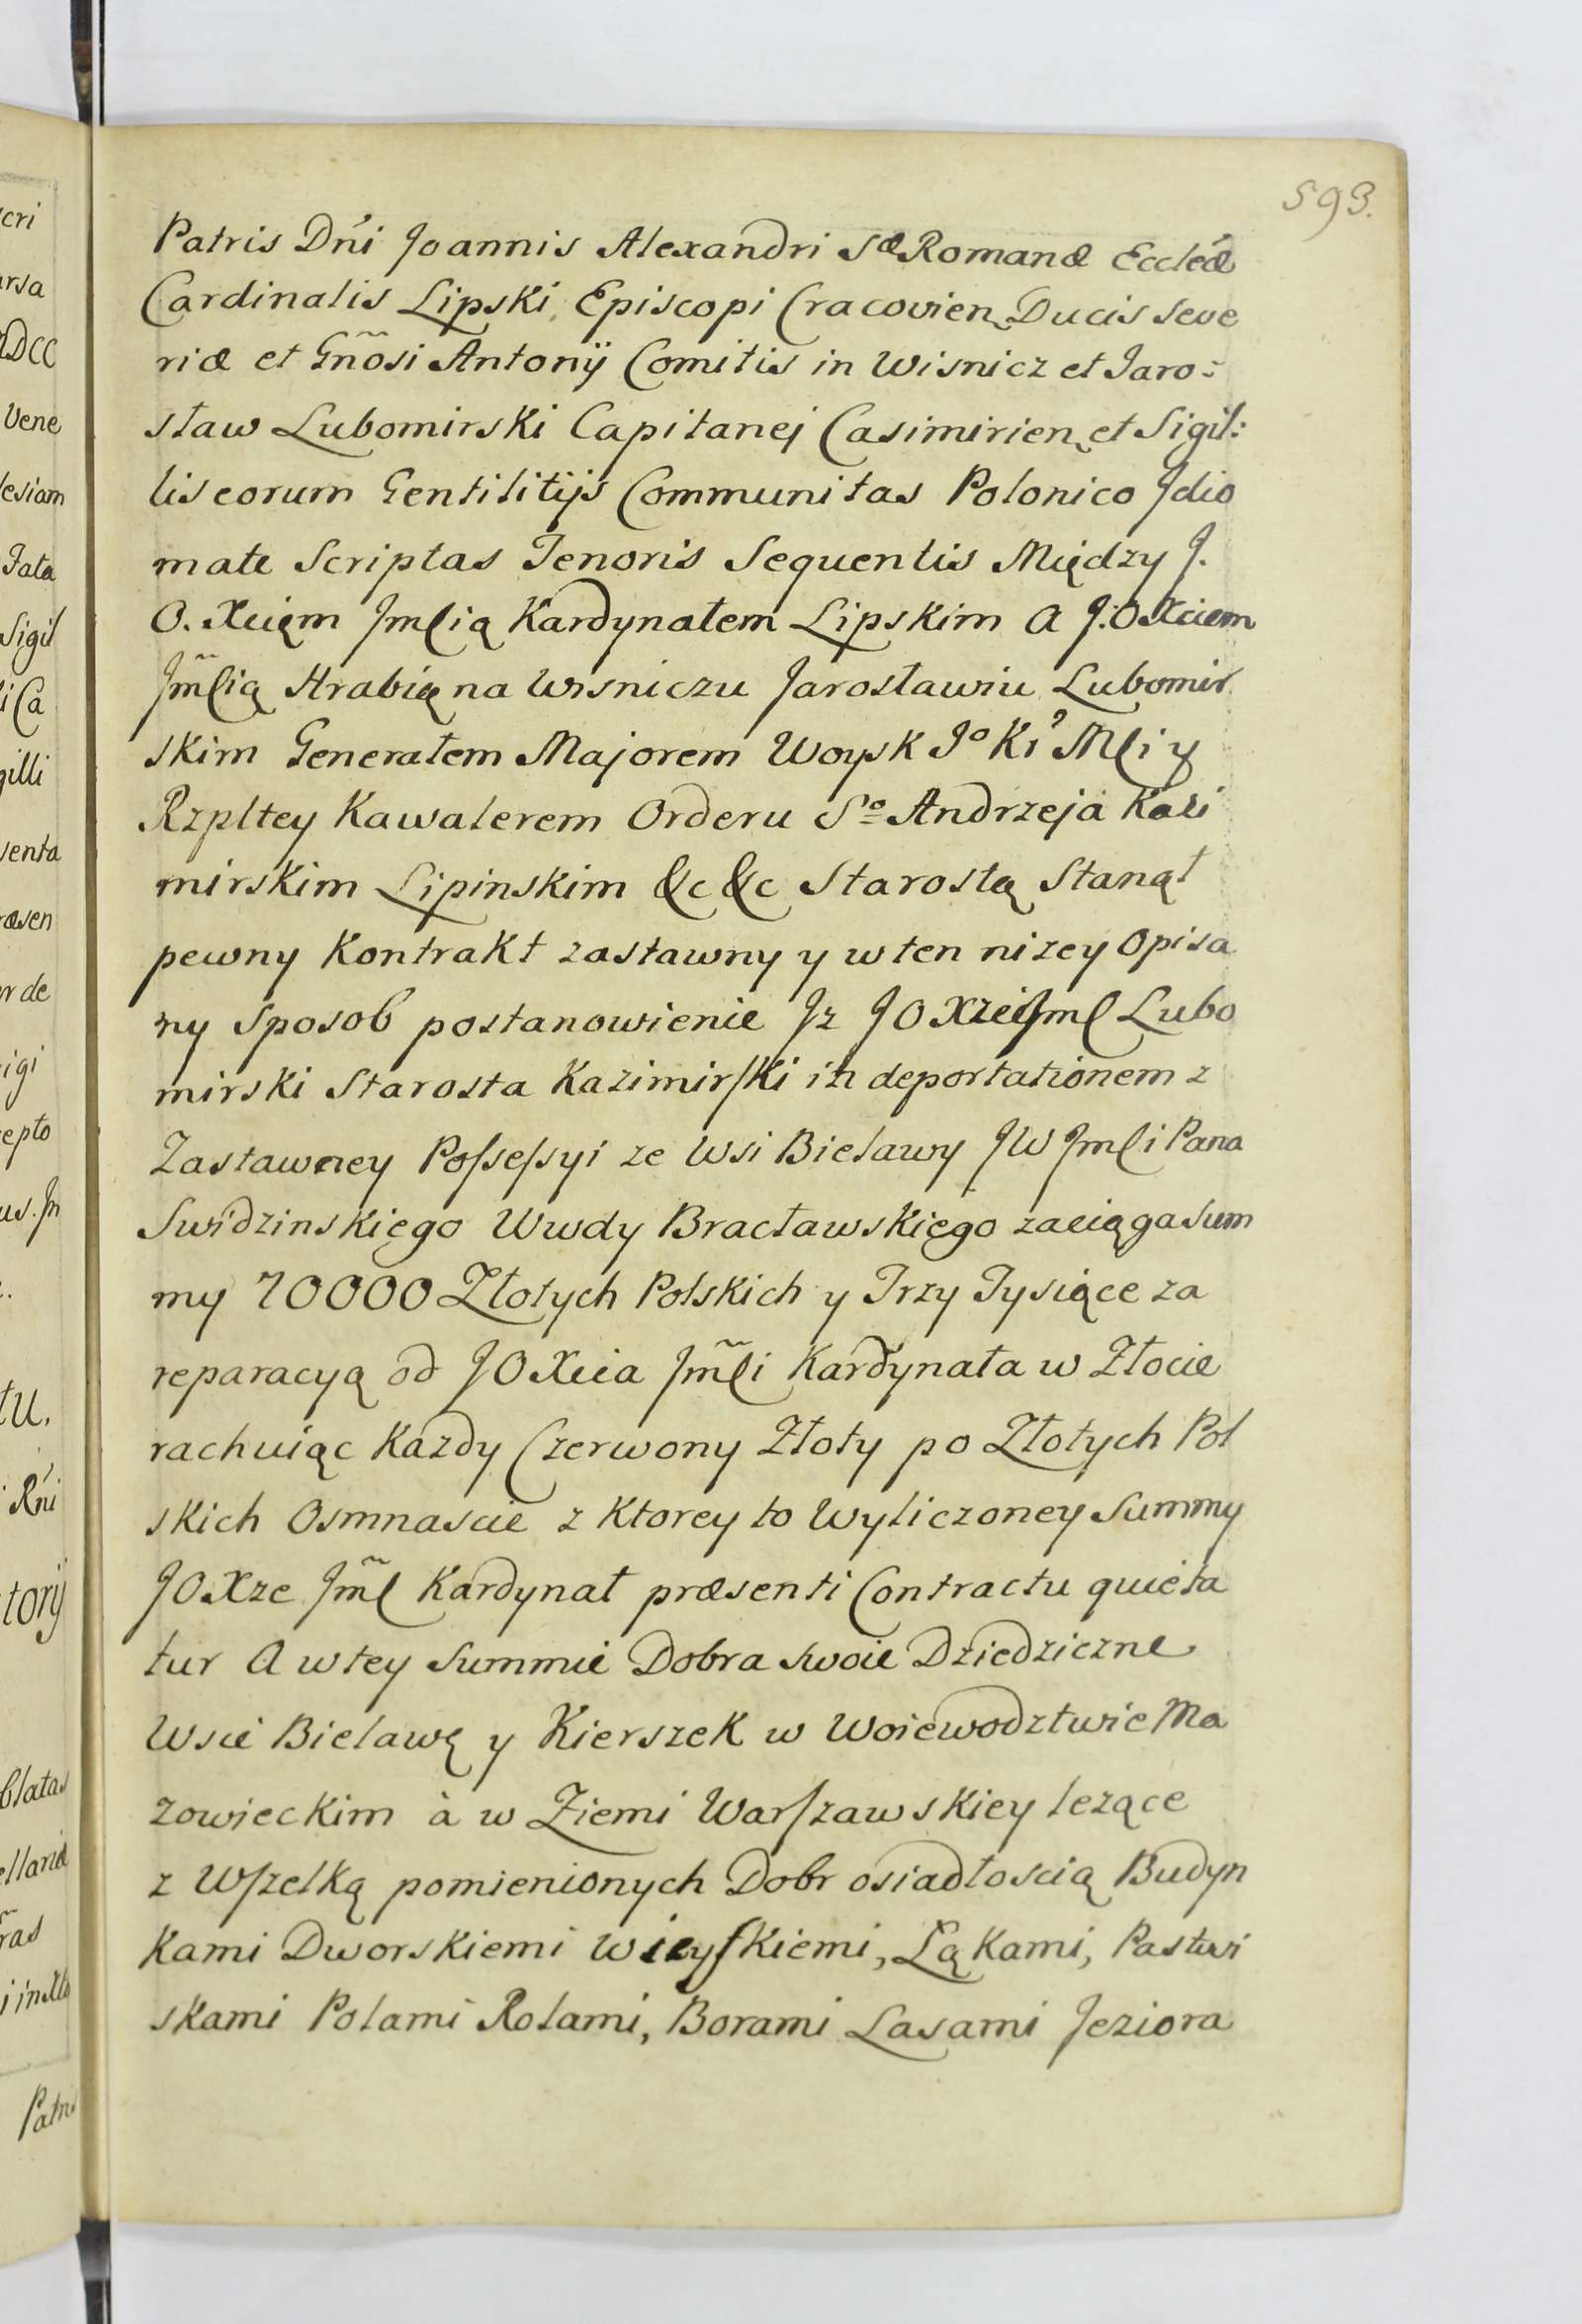 593.
Patris Dńi Joannis Alexandri Sæ Romanæ Eccleæ
Cardinalis Lipski, Episcopi Cracovien Ducis Seve
riæ et Gñosi Antonij Comitis in Wisnicz et Jaro-
sław Lubomirski Capitanej Casimirien et Sigil:
lis eorum Gentilitijs Communitas Polonico Jdio
mate Scriptas Tenoris Sequentis Między J.
O. Xcięm Jmſcią Kardynałem Lipskim A J.O Xciem
Jm̃ſcią Hrabią na Wisniczu Jarosławiu Lubomir
skim Generałem Majorem Woysk Jo Kr Mſci y
Rzpltey Kawalerem Orderu So Andrzeja Kazi
mirskim Lipinskim &c &c Starostą Stanął
pewny Kontrakt zastawny y w ten nizey Opisa
ny Sposob postanowienie Jz JO Xże Jmſc Lubo
mirski Starosta Kazimirſki in deportationem z
Zastawney Poſseſsyi ze Wsi Bielawy JW Jmſci Pana
Swidzinskięgo Wwdy Bracławskięgo zaciąga Sum
my 70000 Złotych Polskich y Trzy Tysiące za
reparacyą od JO Xcia Jm̃ſci Kardynała w Złocie
rachuiąc Kazdy Czerwony Złoty po Złotych Pol
skich Osmnascie z Ktorey to Wyliczoney Summy
JO Xze Jm̃ſc Kardynał præsenti Contractu quieta
tur A w tey Summie Dobra swoie Dziedziczne
Wsie Bielawę y Kierszek w Woiewodztwie Ma
zowieckim à w Ziemi Warſzawskiey lezące
z Wſzelką pomienionych Dobr osiadłoscią Budyn
Kami Dworskiemi Wieyſkiemi, Łąkami, Pastwi
skami Polami Rolami, Borami Lasami Jeziora